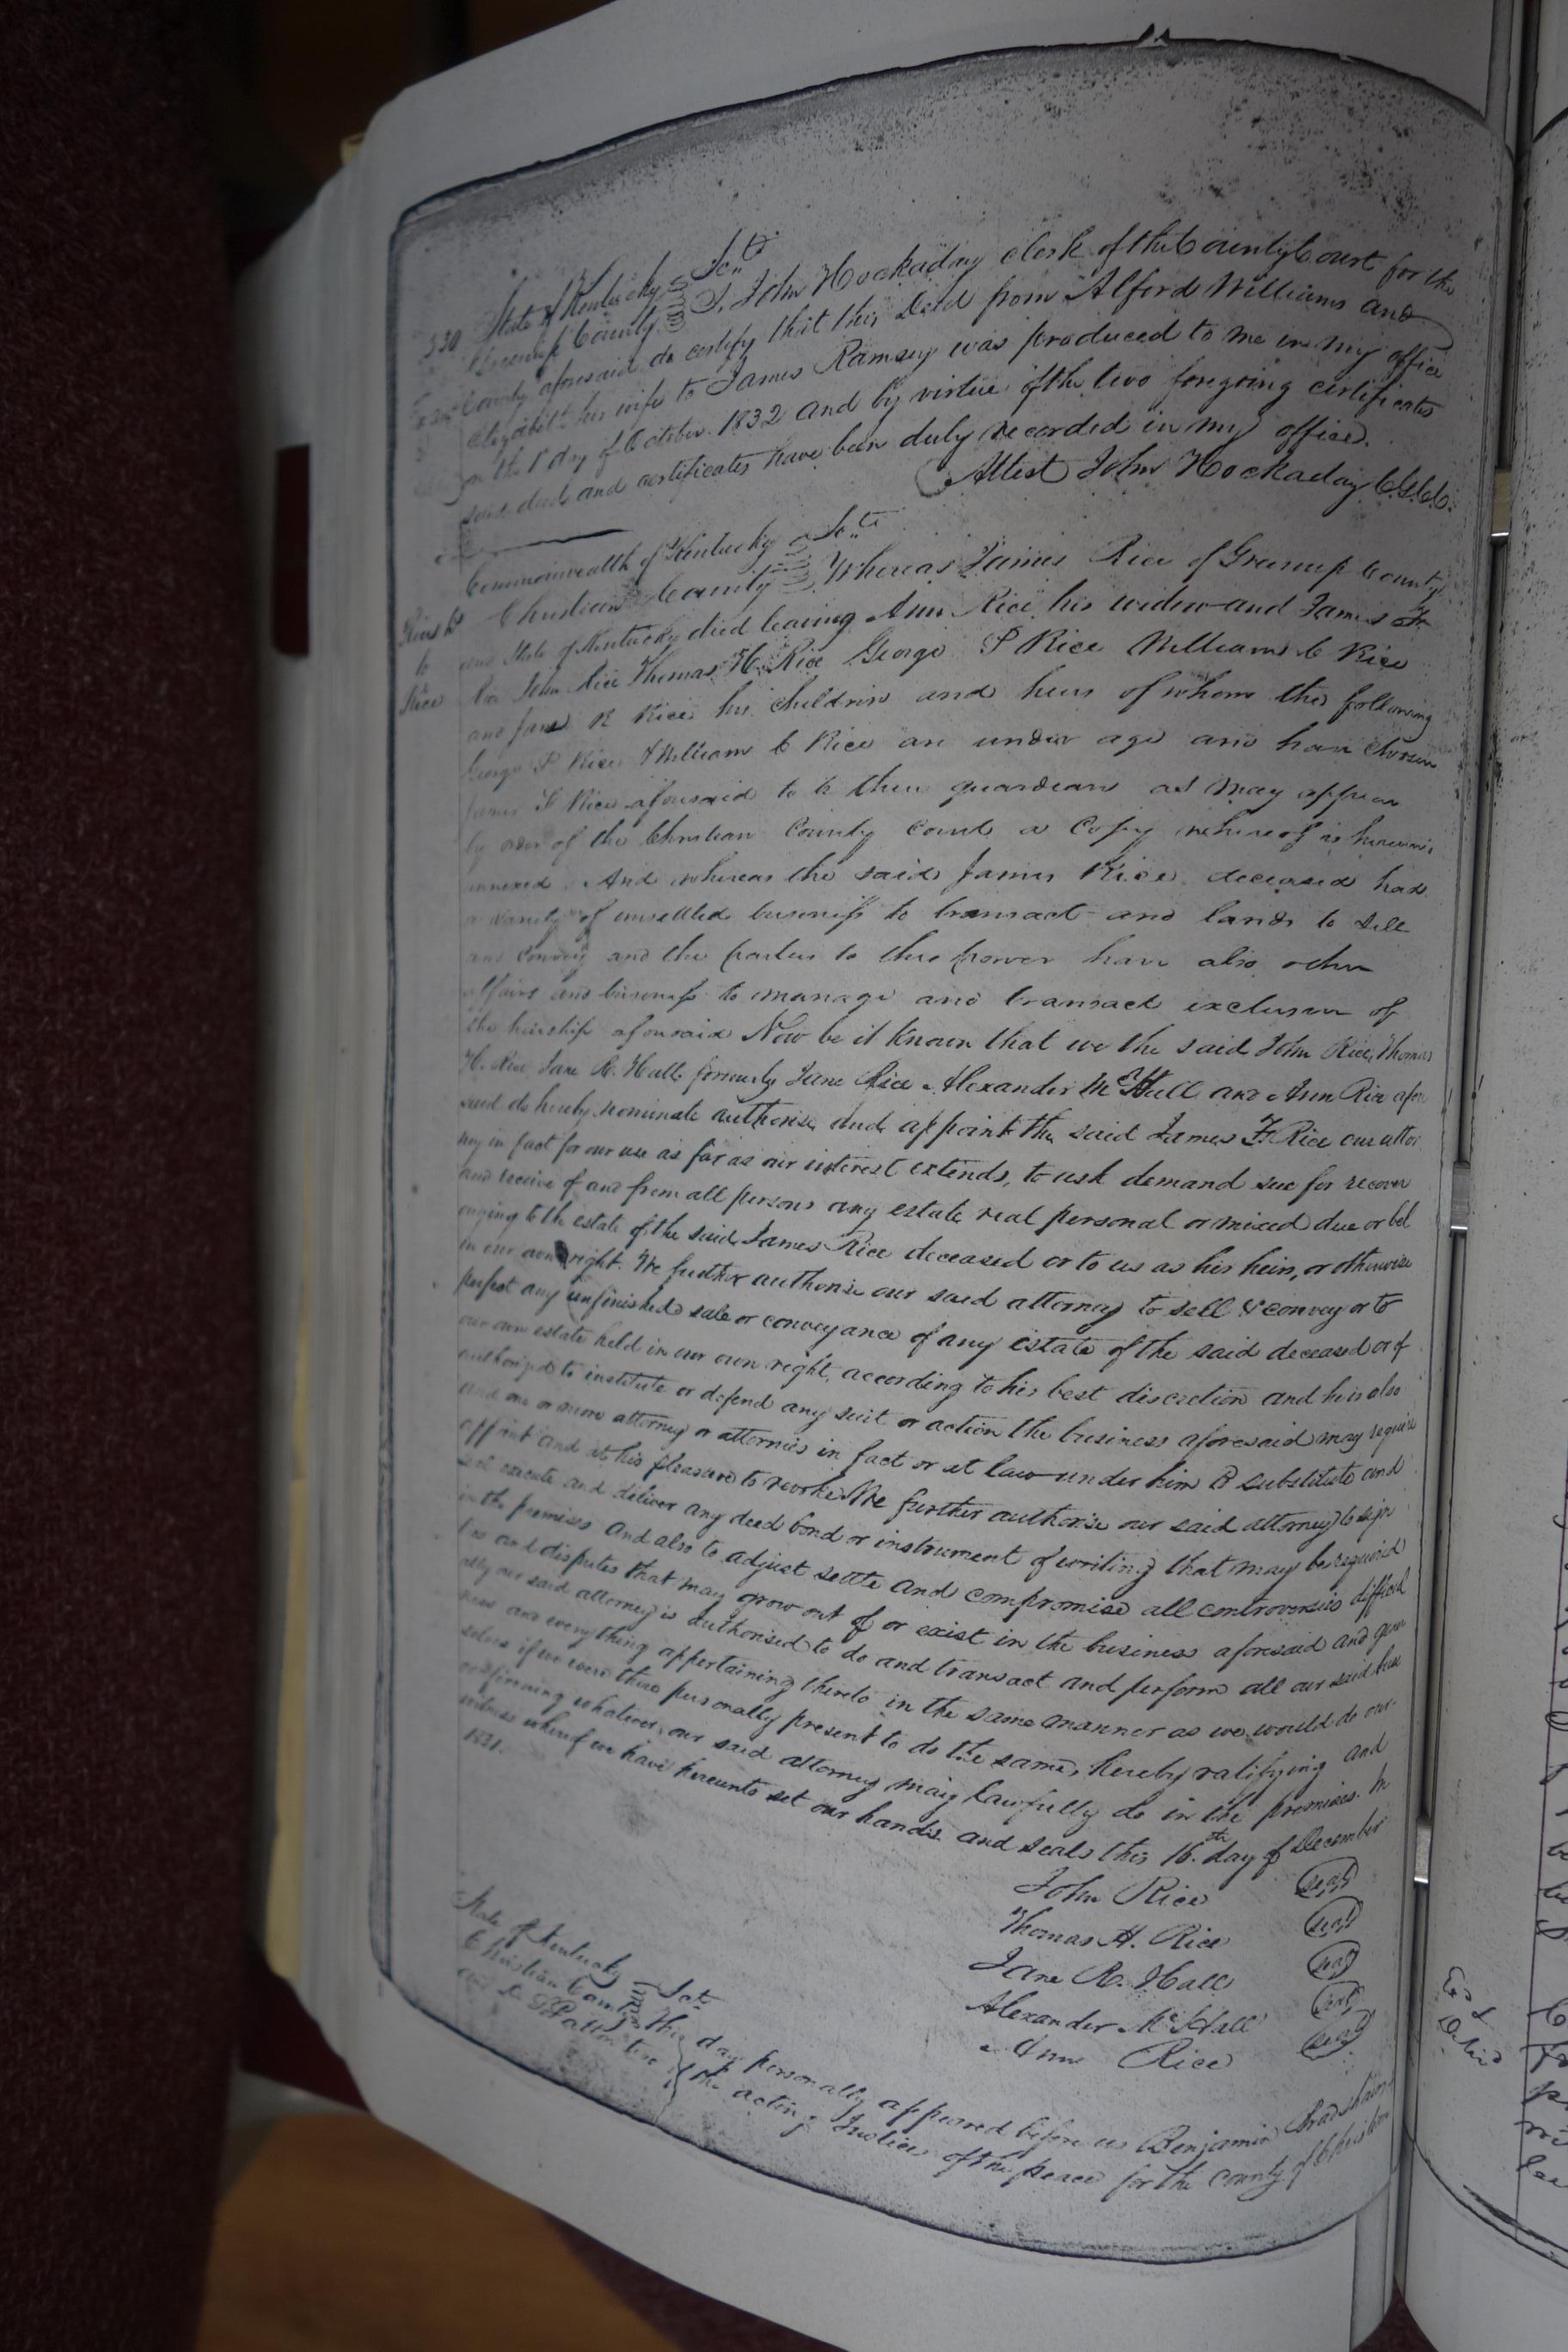 330
State of Kentucky
Greenup County Sct. I, John Hockaday clerk of the County Court for the
County aforesaid do certify that this Deed from Alford Williams and
Elizabeth his wife to James Ramsey was produced to me in my office
on the 1st day of October 1832 and by virtue of the two foregoing certificates
said deed and certificates have been duly recorded in my office.
Attest John Hockaday C.G.C.C.
Commonwealth of Kentucky Sct.
Christian County Whereas James Rice of Greenup County
to
Rice
and State of Kentucky died leaving Ann Rice his widow and James F.
Rice John Rice Thomas H. Rice George P Rice William C Rice
and Jane R Rice his children and heirs of whom the following
George P Rice & William C Rice are under age and have chosen
James F Rice aforesaid to be their guardian as may appear
by order of the Christian County court a copy whereof is herewith
annexed. And whereas the said James Rice deceased has
a variety of unsettled business to transact and lands to sell
and convey and the parties to this power have also other
affairs and business to manage and transact exclusive of
the heirship aforesaid Now be it known that we the said John Rice, Thomas
H. Rice Jane R. Hall formerly Jane Rice Alexander McHall and Ann Rice afore
said do hereby nominate authorise and appoint the said James F. Rice our attor
ney in fact for our use as far as our interest extends, to ask demand sue for recover
and receive of and from all persons any estate real personal or mixed due or bel
onging to the estate of the said James Rice deceased or to us as his heirs, or otherwise
in our own right. We further authorise our said attorney to sell & convey or to
perfect any unfinished sale or conveyance of any estate of the said deceased or of
our own estate held in our own right, according to his best discretion and he is also
authorized to institute or defend any suit or action the business aforesaid may require
and one or more attorney or attornies in fact or at law under him to substitute and
appoint and at his pleasure to revoke. We further authorise our said attorney to sign
seal execute and deliver any deed bond or instrument of writing that may be required
in the premises and also to adjust settle and compromise all controversies difficul
ties and disputes that may grow out of or exist in the business aforesaid and gener
ally our said attorney is authorised to do and transact and perform all our said busi
ness and everything appertaining thereto in the same manner as we would do our
selves if we were there personally present to do the same, hereby ratifying and
confirming whatever our said attorney may lawfully do in the premises. In
witness whereof we have hereunto set our hands and seals this 16th day of December
1831.
John Rice seal
Thomas H. Rice seal
Jane R. Hall seal
Alexander McHall seal
Ann Rice seal
State of Kentucky
Christian County Sct. This day personally appeared before us Benjamin Bradshaw
and two of the acting Justices of the peace for the county of Christian